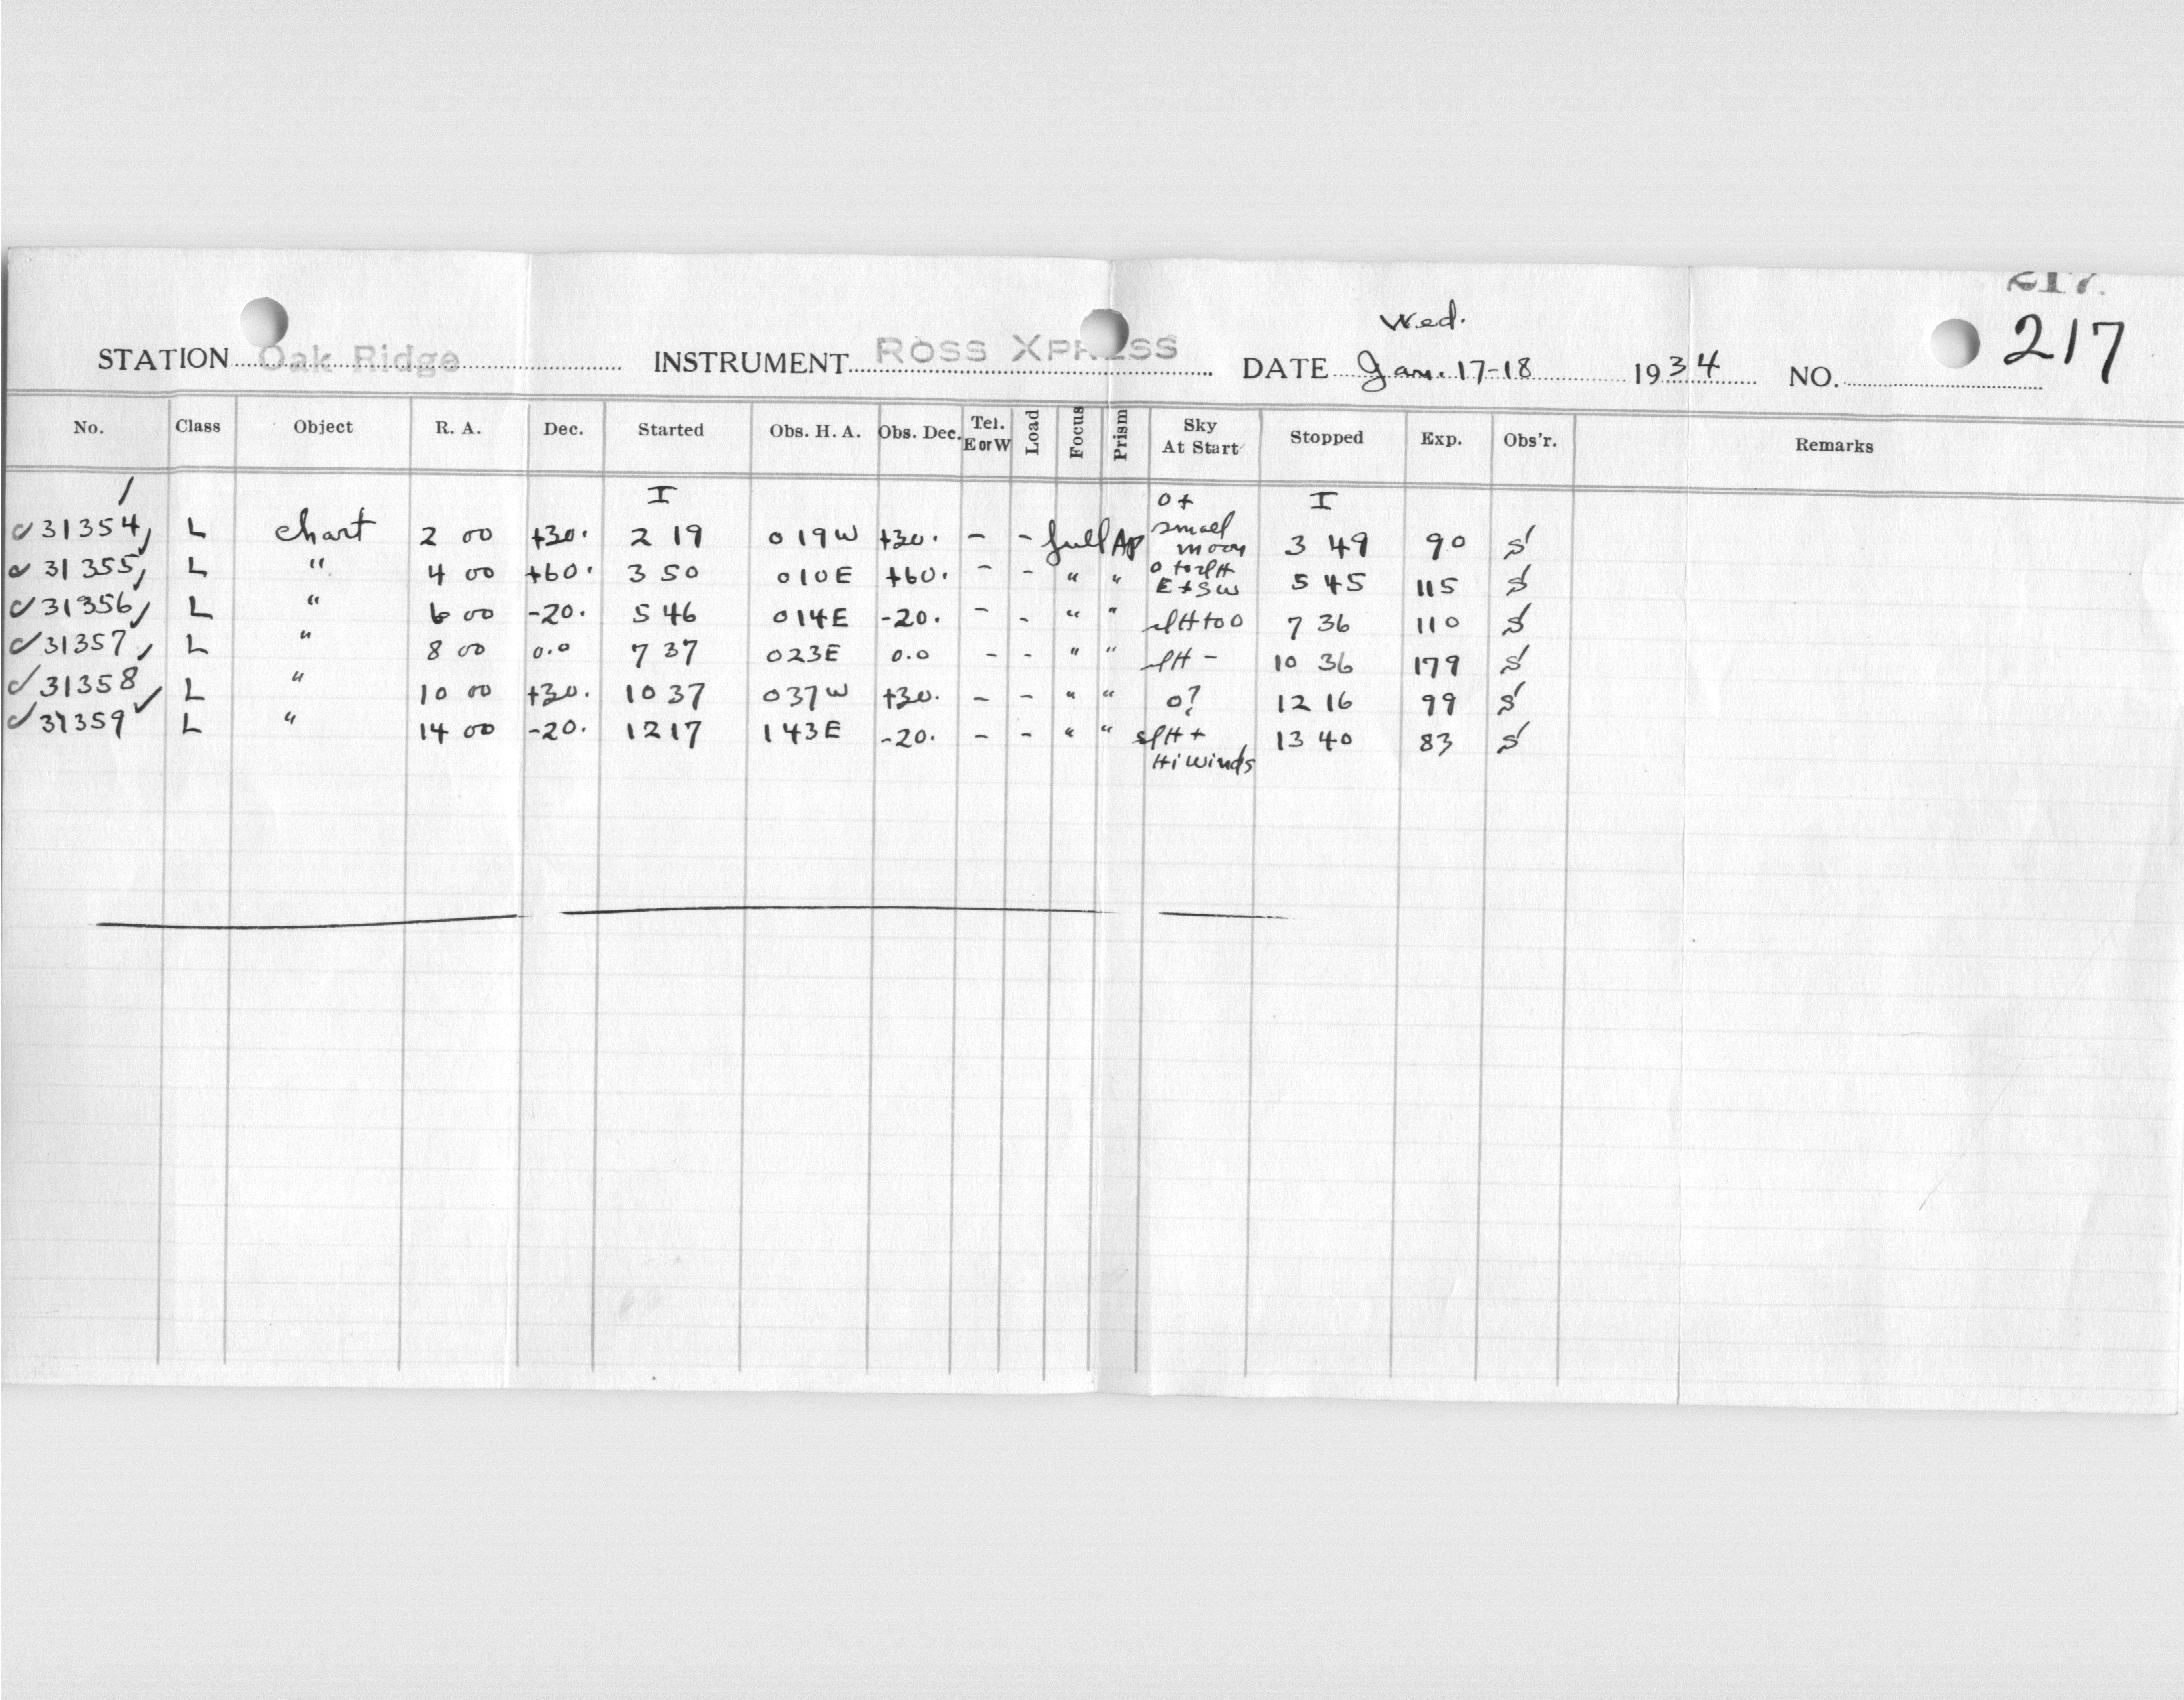 217.
Wed.
STATION Oak Ridge INSTRUMENT ROSS XPRESS DATE Jan. 17-18 1934 NO. 217
No. Class Object R. A. Dec. Started Obs. H. A. Obs. Dec. Tel. E or W Load Focus Prism Sky At Start Stopped Exp. Obs'r. Remarks
I 0+ I
31354 L chart 2 00 +30. 2 19 0 19 W +30. - - full Ap small moon 3 49 90 S
31355 L " 4 00 +60. 3 50 0 10 E +60. - - " " 0 to slH E + SW 5 45 115 S
31356 L " 6 00 -20. 5 46 0 14 E -20. - - " " slH to 0 7 36 110 S
31357 L " 8 00 0.0 7 37 0 23 E 0.0 - - " " slH - 10 36 179 S
31358 L " 10 00 +30. 10 37 0 37 W +30. - - " " 0? 12 16 99 S
31359 L " 14 00 -20. 12 17 1 43 E -20. - - " " slH + 13 40 83 S
Hi winds